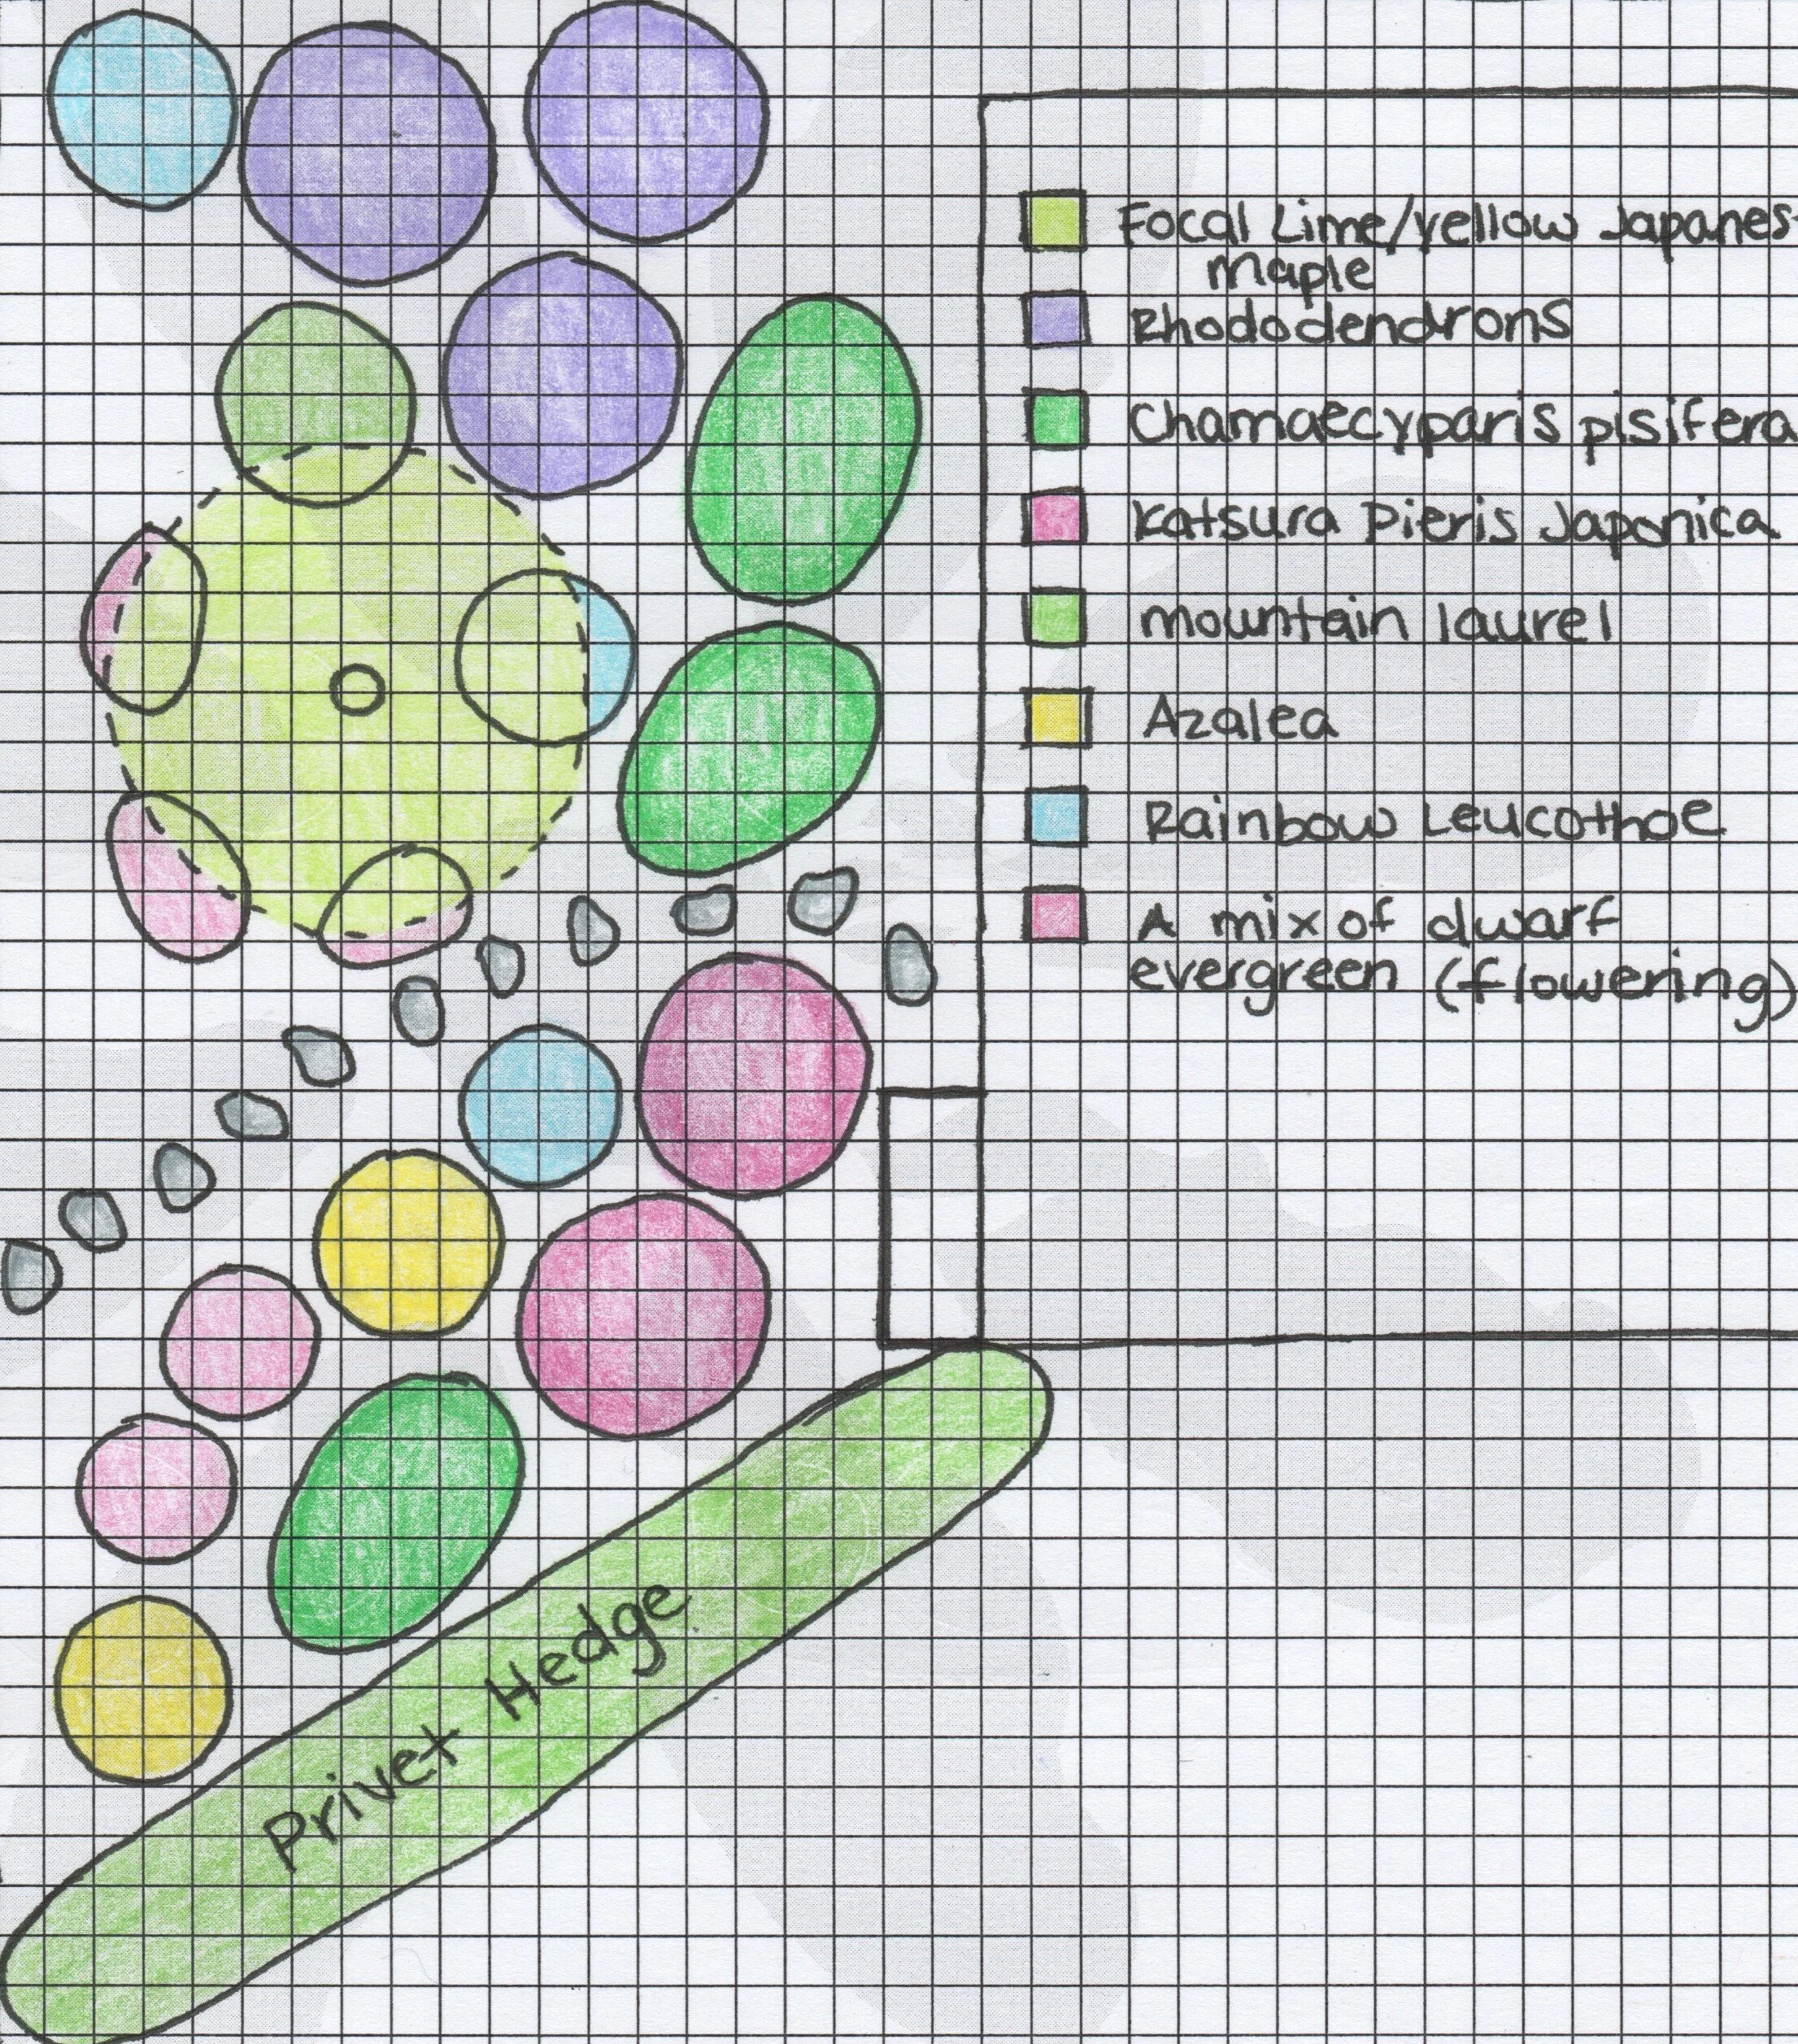 Focal Lime/yellow Japanes
maple
Rhododendrons
Chamaecyparis pisifera
Katsura Pieris Japonica
mountain laurel
Azalea
Rainbow Leucothoe
A mix of dwarf
evergreen (flowering)
Privet Hedge